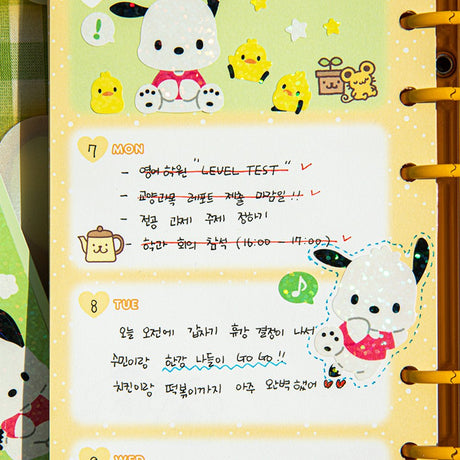 7 MON
- 영어학원 "LEVEL TEST"
- 교양과목 레포트 제출 마감일!!
- 전공 과제 주제 정하기
- 학과 회의 참석 (16:00 - 17:00)
8 TUE
오늘 오전에 갑자기 휴강 결정이 나서
수민이랑 한강 나들이 GO GO!!
치킨이랑 떡볶이까지 아주 완벽했어
WED